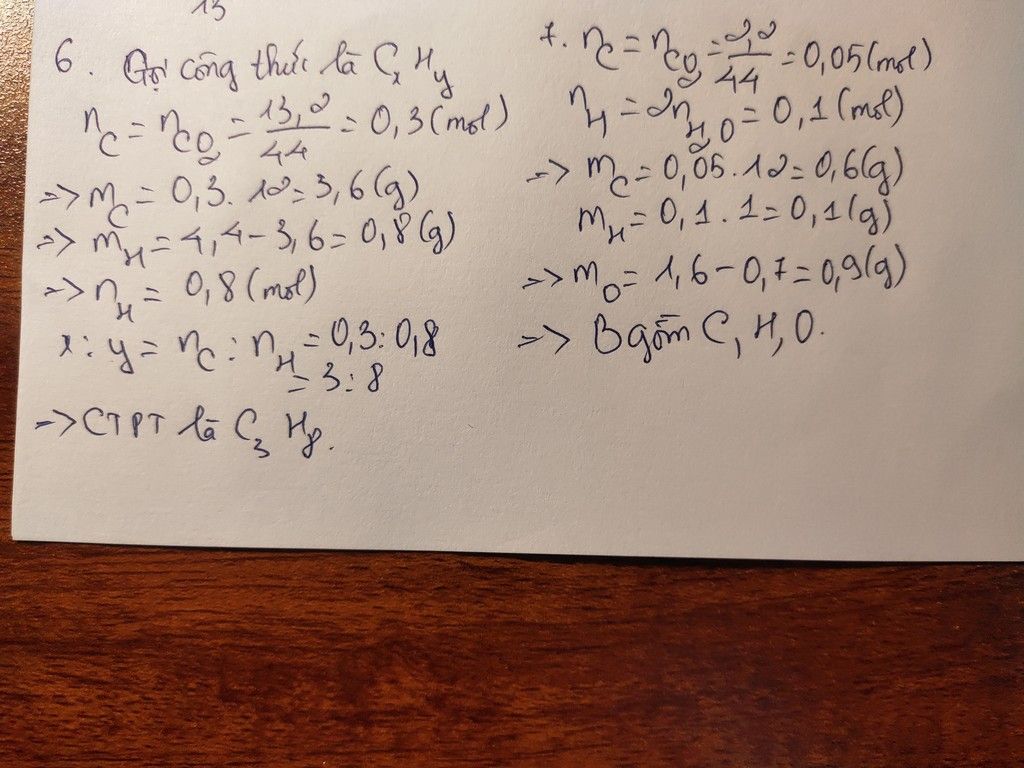 13
6. Gọi công thức là CxHy
nC = nCO2 = 13,2/44 = 0,3 (mol)
=> mC = 0,3. 12 = 3,6 (g)
=> mH = 4,4 - 3,6 = 0,8 (g)
=> nH = 0,8 (mol)
x : y = nC : nH = 0,3 : 0,8
= 3 : 8
=> CTPT là C3H8.
7. nC = nCO2 = 2,2/44 = 0,05 (mol)
nH = 2nH2O = 0,1 (mol)
=> mC = 0,05 . 12 = 0,6 (g)
mH = 0,1 . 1 = 0,1 (g)
=> mO = 1,6 - 0,7 = 0,9 (g)
=> B gồm C, H, O.